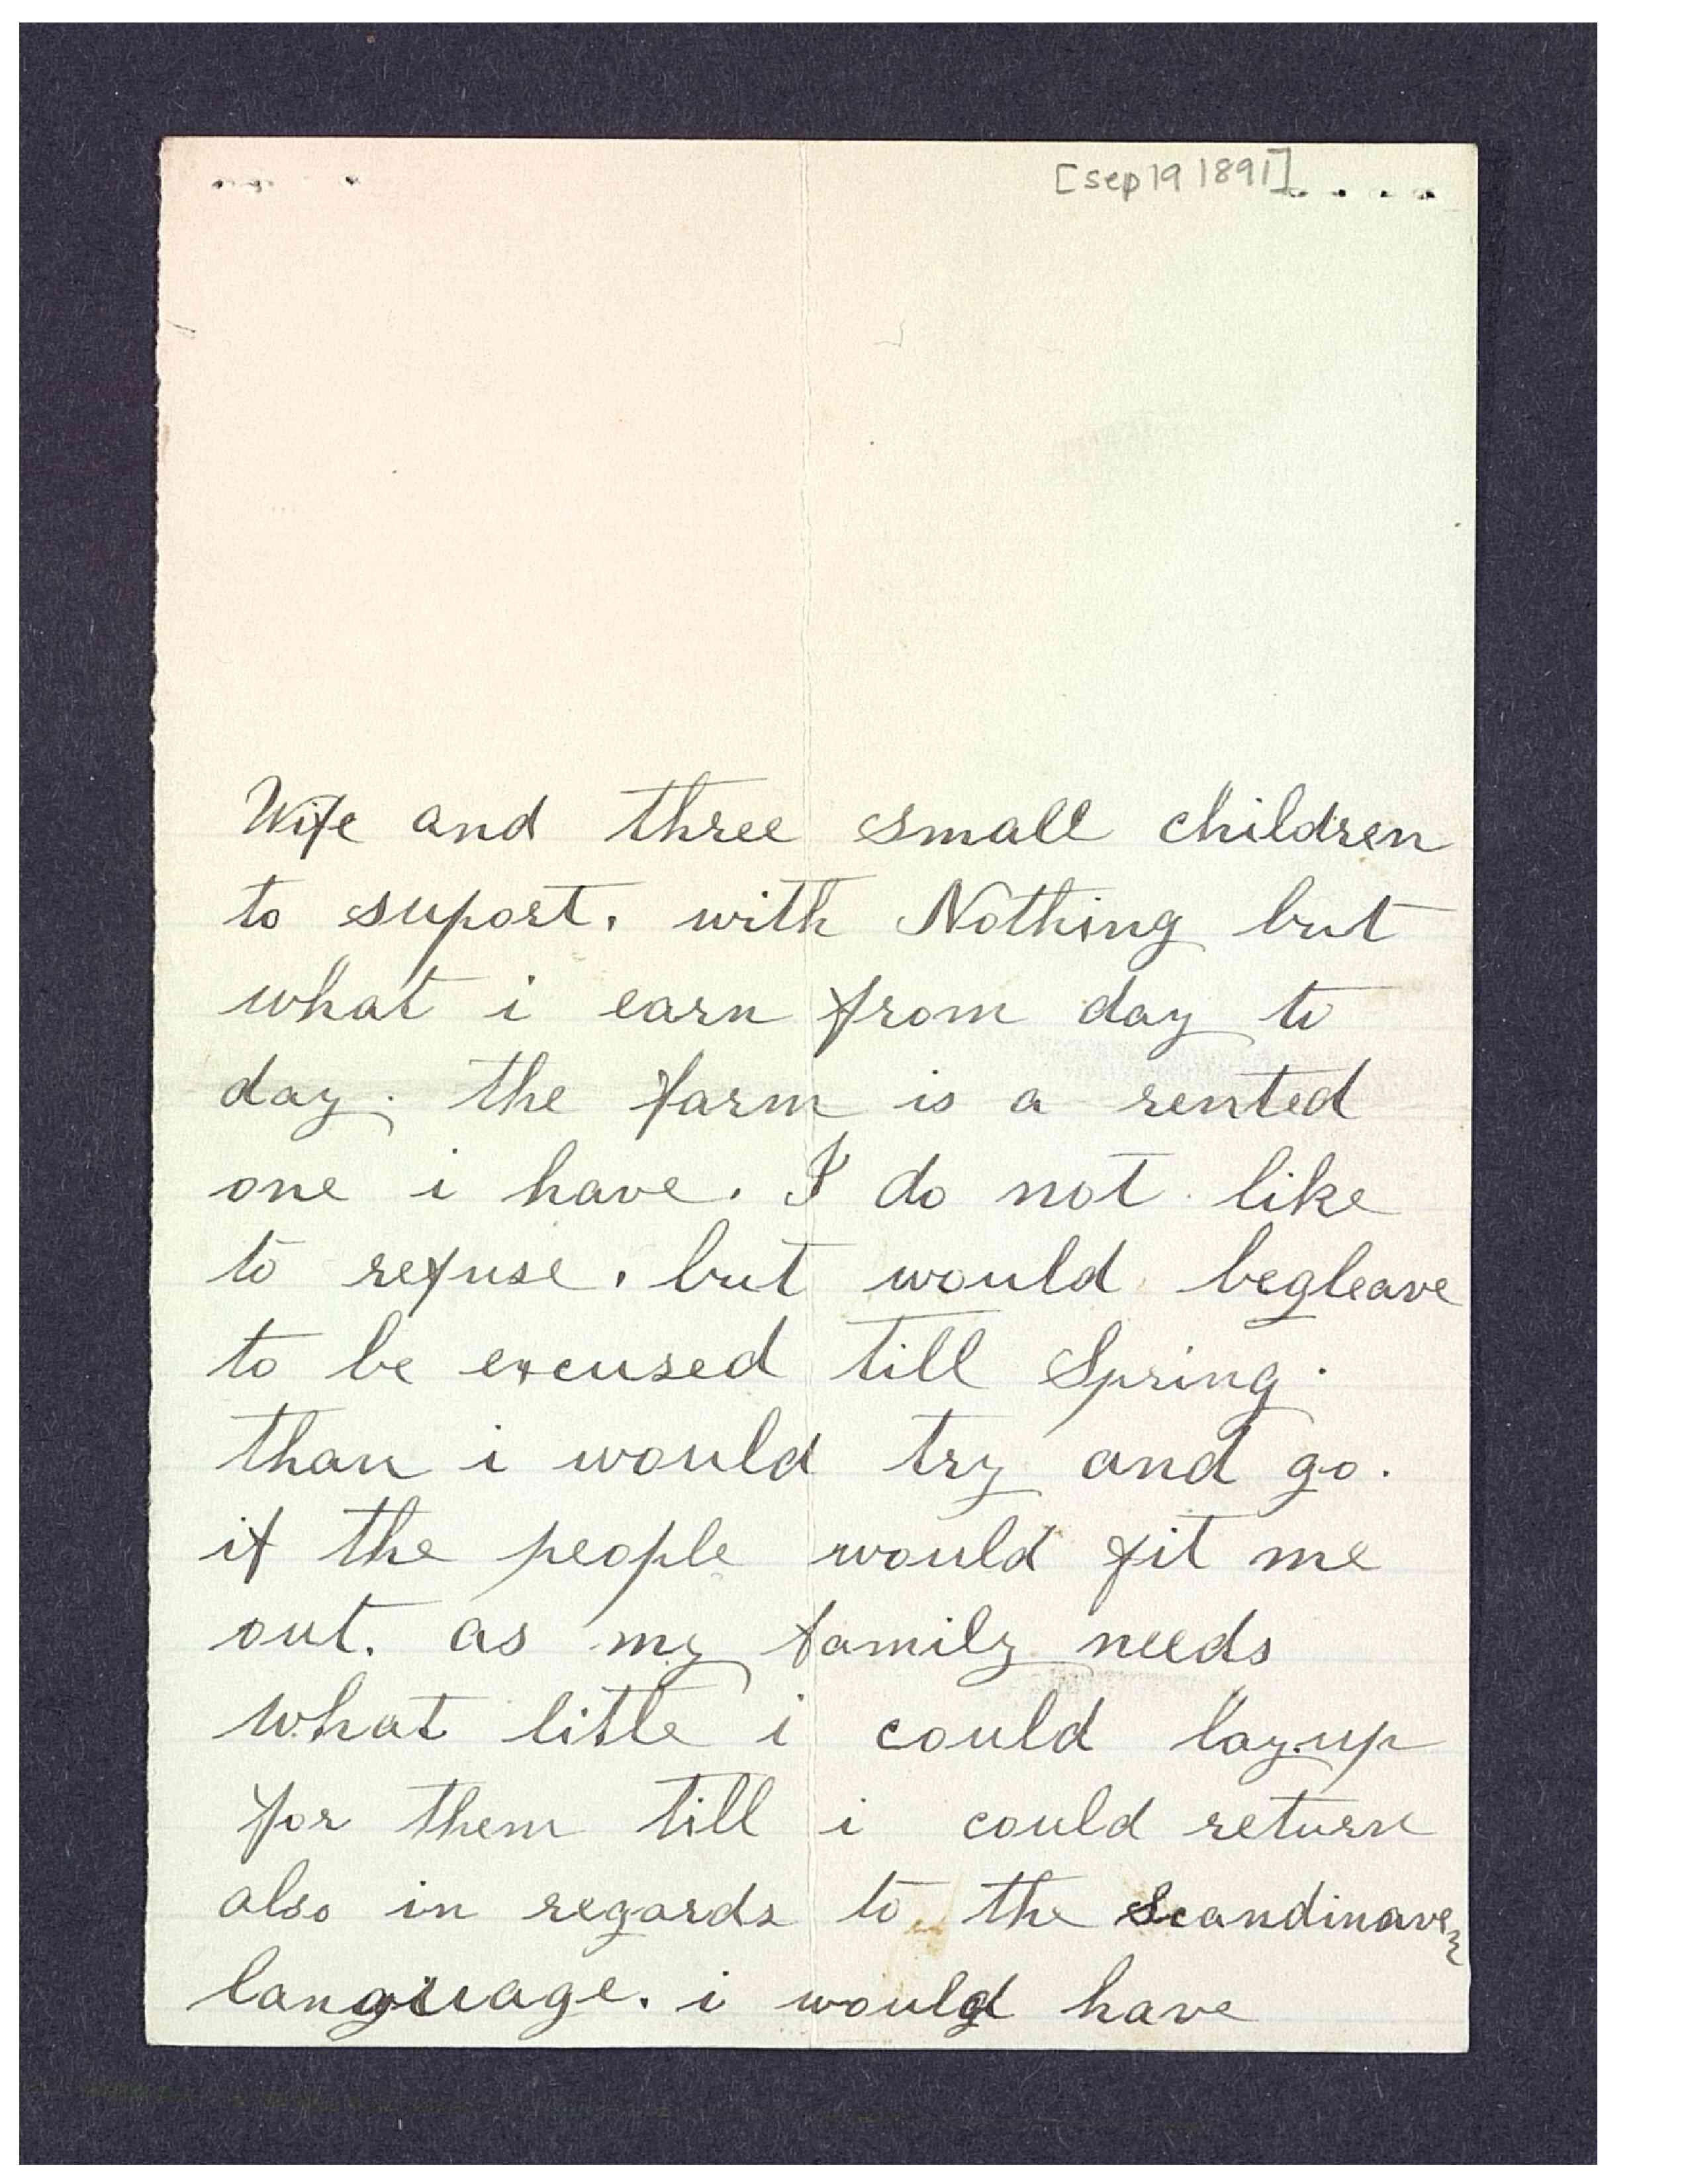 [sep 19 1891]
Wife and three small children
to suport. with Nothing but
what i earn from day to
day. the farm is a rented
one i have. I do not like
to refuse. but would begleave
to be excused till Spring.
than i would try and go.
if the people would fit me
out. as my family needs
what litle i could lay.up
for them till i could return
also in regards to the Scandinave
language. i would have